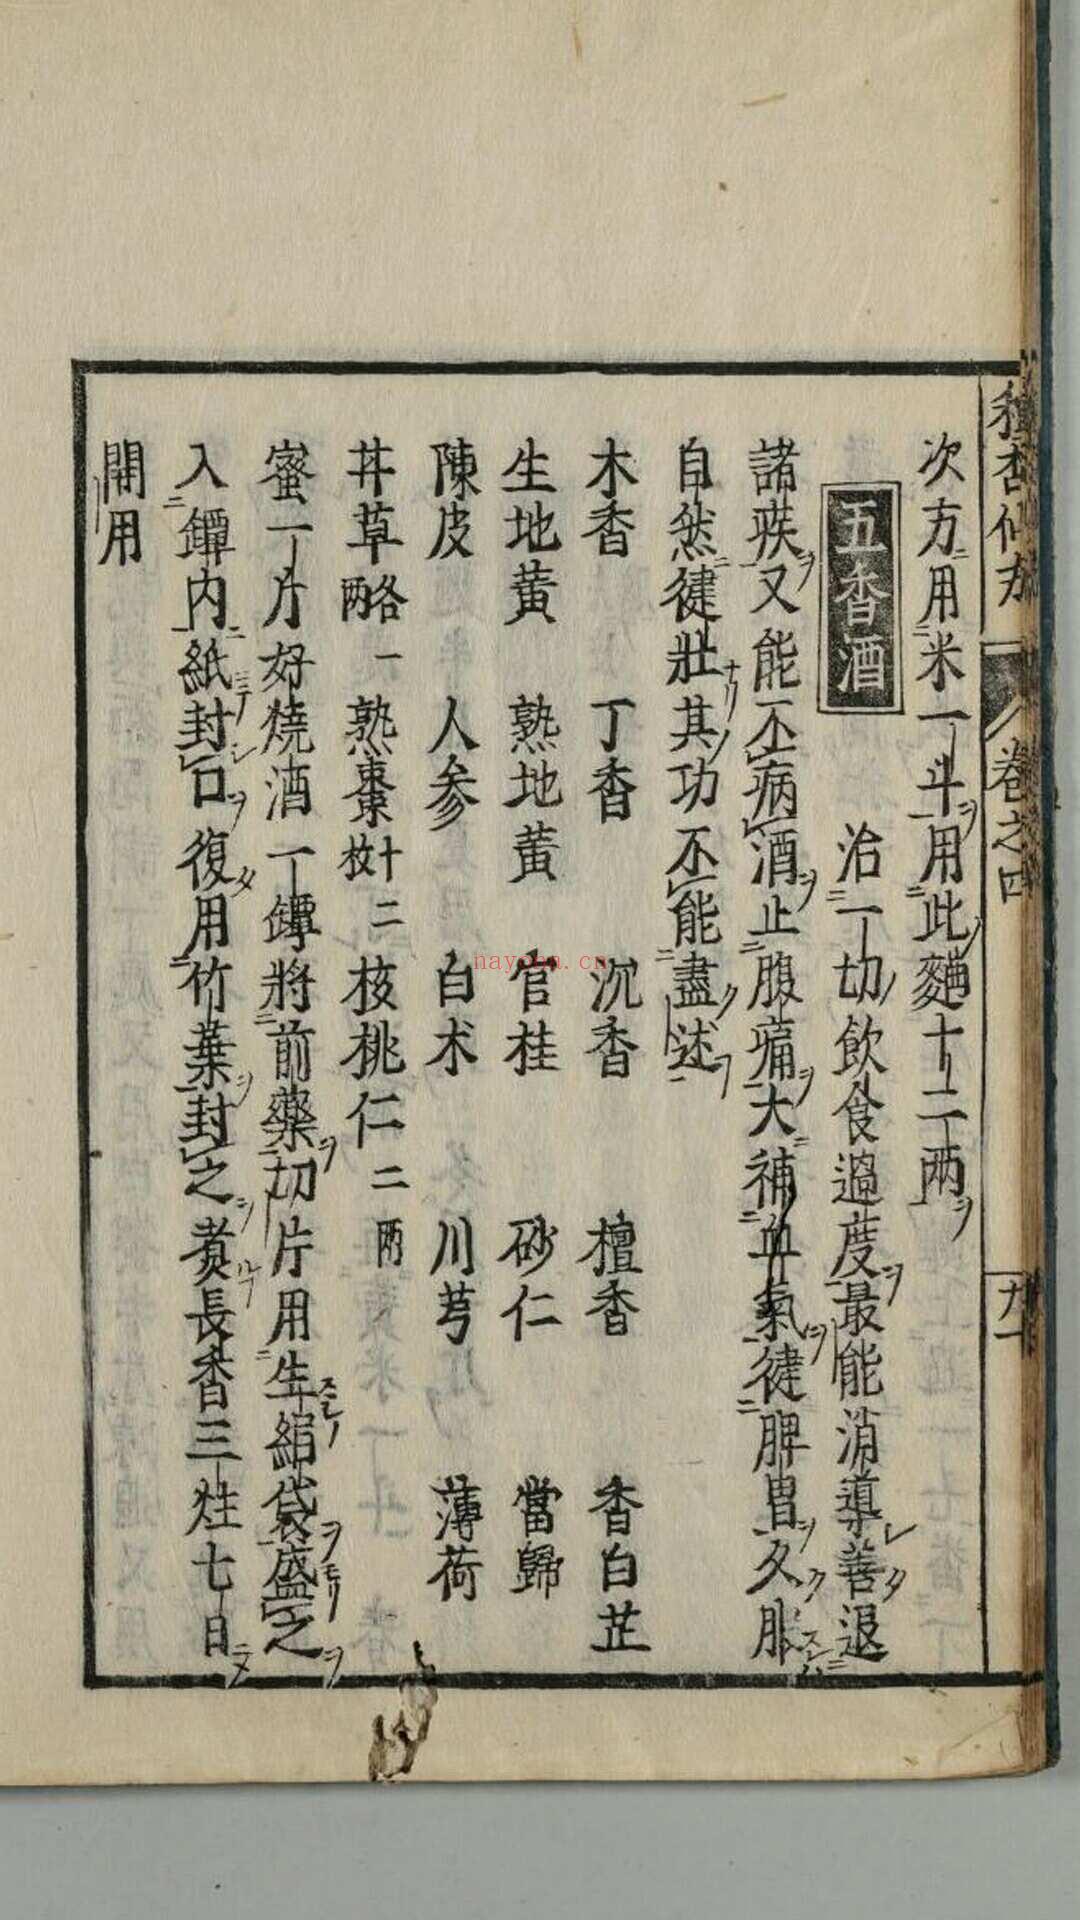 種杏仙方 卷之四 九
次方用米一斗用此麯十二两
五香酒 治一切飲食過度最能消導善退
諸疾又能不病酒止腹痛大補血氣健脾胃久服
自然健壯其功不能盡述
木香 丁香 沉香 檀香 香白芷
生地黃 熟地黃 官桂 砂仁 當歸
陳皮 人参 白朮 川芎 薄荷
甘草各一两 熟棗十二枚 核桃仁二两
蜜一片好燒酒一鐔將前藥切片用生絹袋盛之
入鐔內紙封口復用竹葉封之煮長香三炷七日
開用
nayona.cn